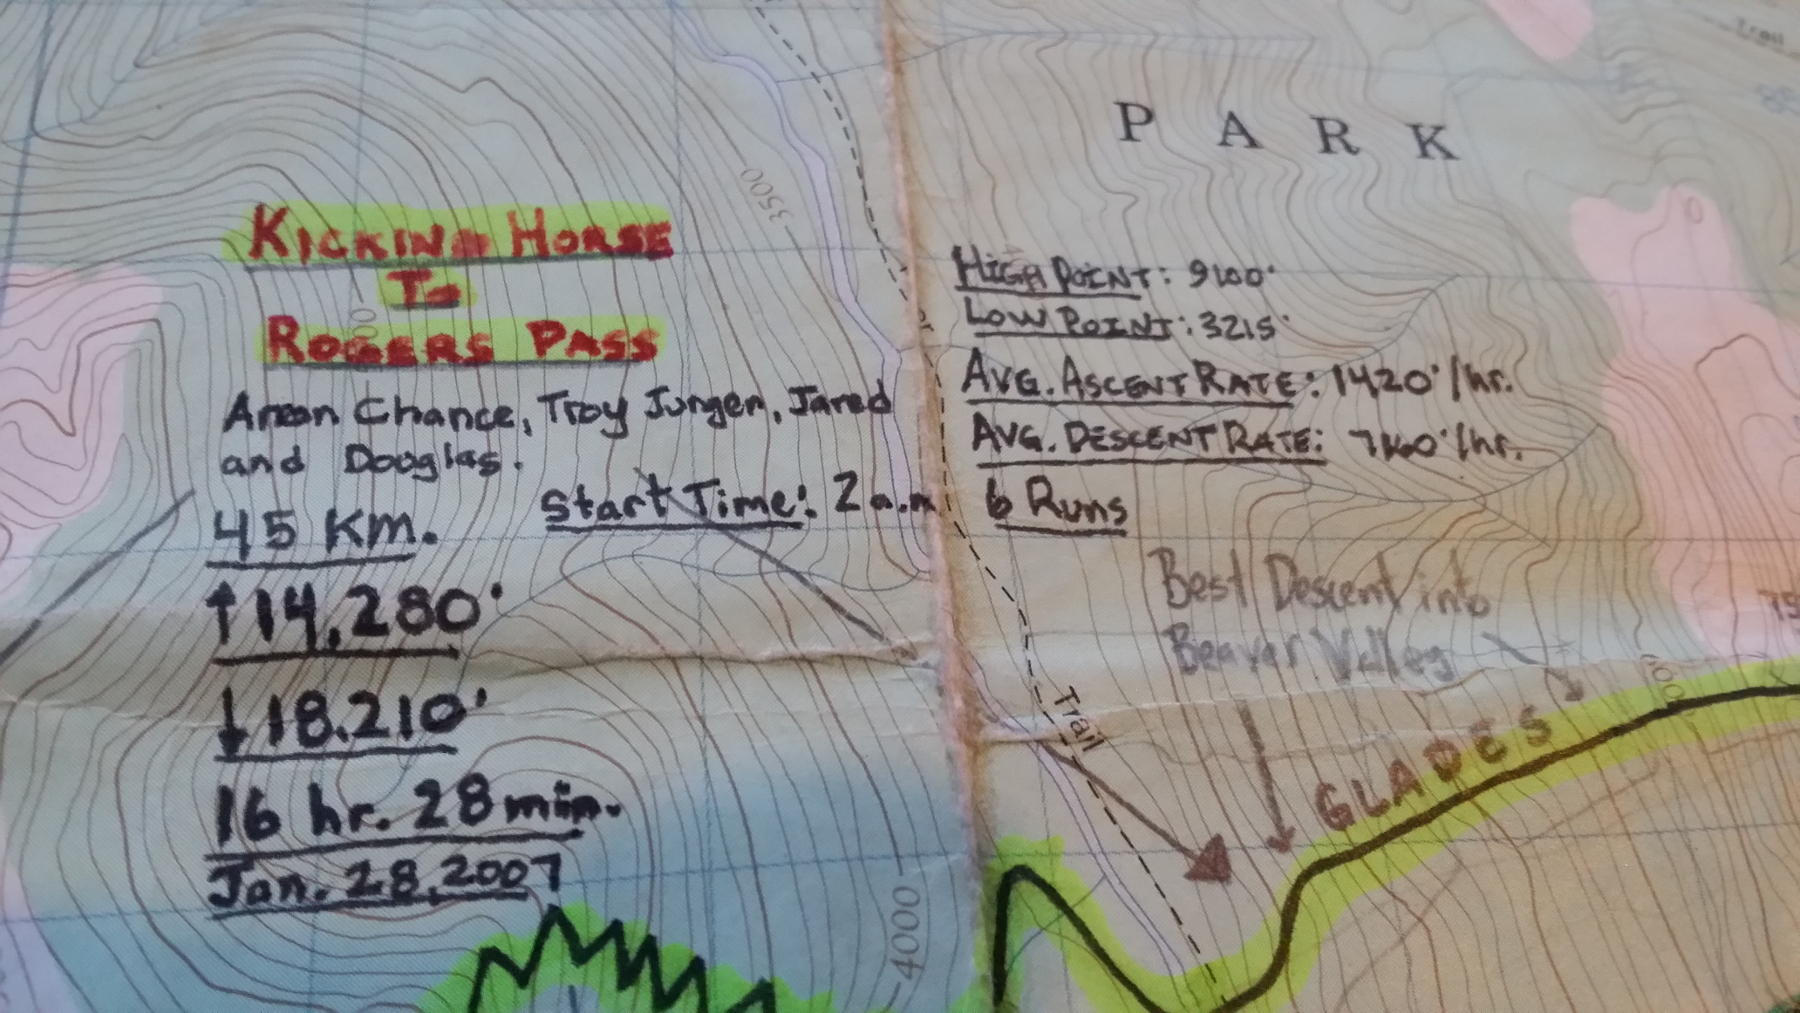 Trail
PARK
3500
KICKING HORSE
TO
ROGERS PASS
Aaron Chance, Troy Jungen, Jared
and Dooglas.
45 Km.
Start Time: 2 a.m
↑14,280'
↓18,210'
16 hr. 28 min.
Jan. 28, 2007
HIGH POINT: 9100'
LOW POINT: 3215'
AVG. ASCENT RATE: 1420'/hr.
AVG. DESCENT RATE: 7160'/hr.
6 Runs
Best Descent into
Beaver Valley
GLADES
Trail
4000